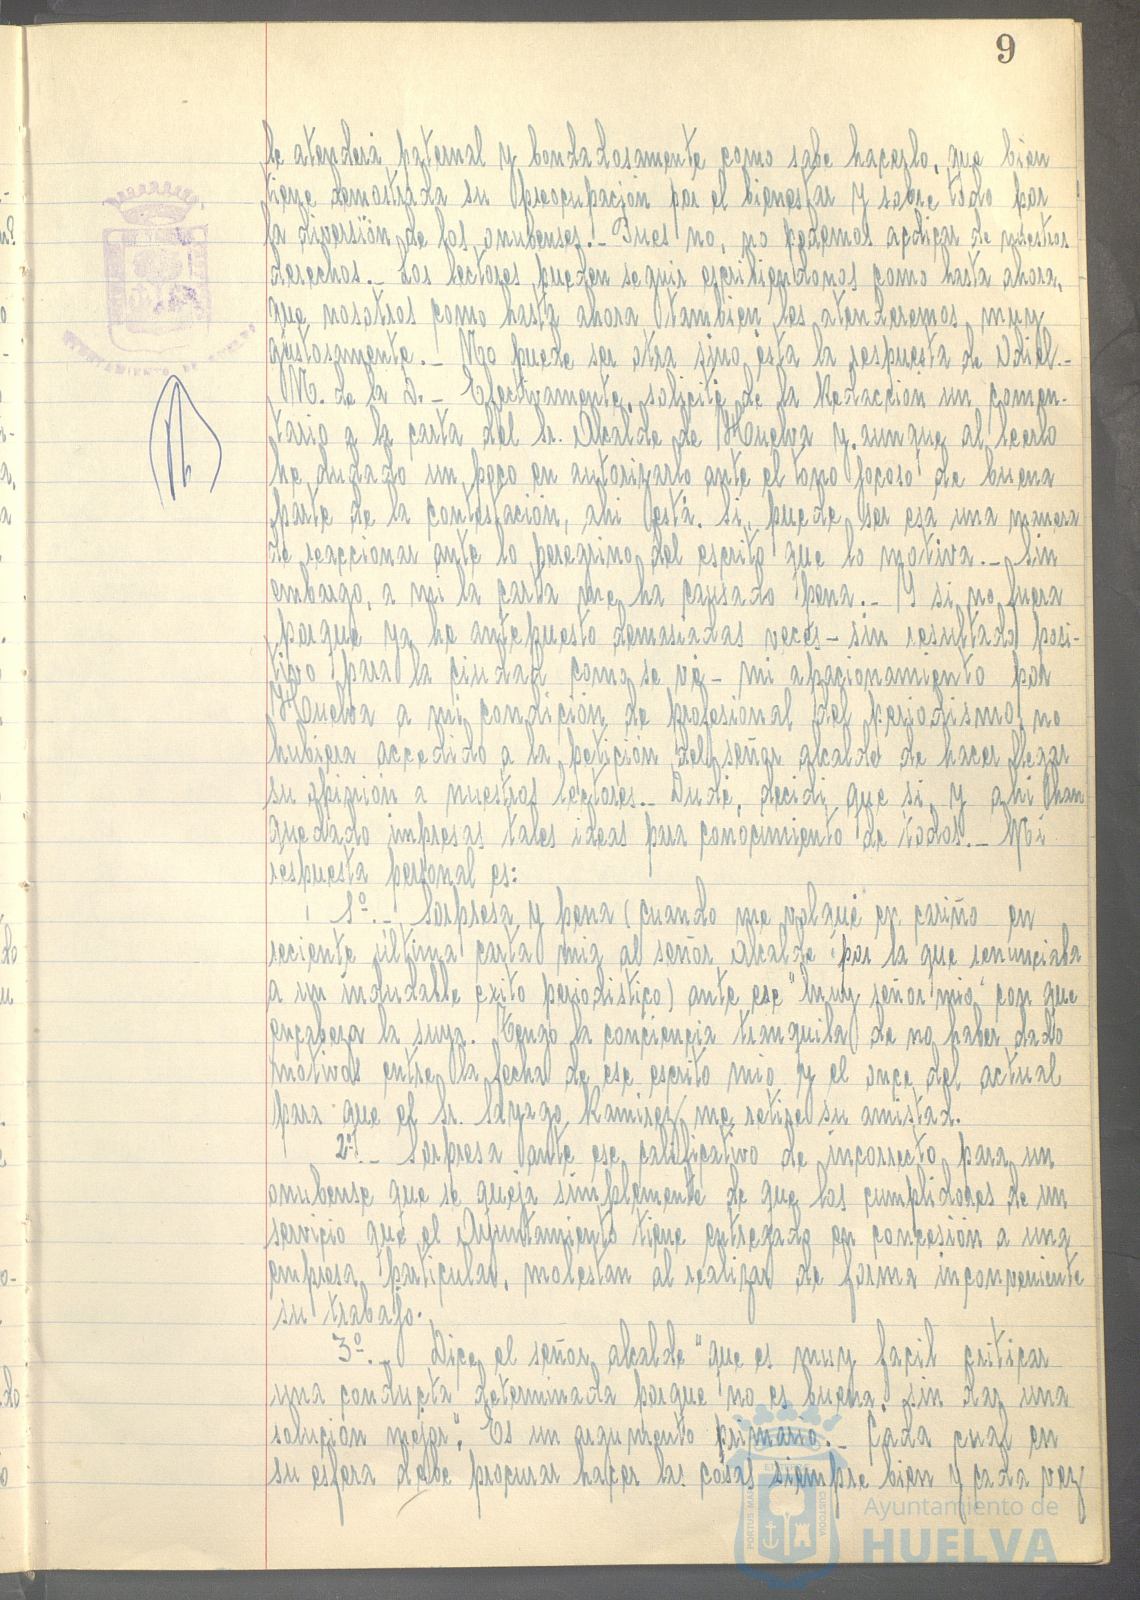 9
le atenderá paternal y bondadosamente como sabe hacerlo, que bien
tiene demostrada su preocupación por el bienestar y sobre todo por
la diversión de los onubenses.- Pues no, no podemos abdicar de nuestros
derechos.- Los lectores pueden seguir escribiendonos como hasta ahora,
que nosotros como hasta ahora tambien les atenderemos muy
gustosamente.- No puede ser otra sino esta la respuesta de Odiel.-
M. de la D.- Efectivamente, solicité de la Redacción un comen-
tario a la carta del Sr. Alcalde de Huelva y aunque al leerlo
he dudado un poco en autorizarlo ante el tono jocoso de buena
parte de la contestación, ahi está. Si, puede ser esa una manera
de reaccionar ante lo peregrino del escrito que lo motiva.- Sin
embargo, a mi la carta me ha causado pena.- Y si no fuera
porque ya he antepuesto demasiadas veces - sin resultado posi-
tivo para la ciudad como se vé - mi apacionamiento por
Huelva a mi condición de profesional del periodismo, no
hubiera accedido a la petición del señor alcalde de hacer llegar
su opinión a nuestros lectores.- Dudé, decidi que si y ahi han
quedado impresas tales ideas para conocimiento de todos.- Mi
respuesta personal es:
1º.- Sorpresa y pena (cuando me volqué en cariño en
reciente última carta mia al señor Alcalde por la que renunciaba
a un indudable exito periodistico) ante ese "muy señor mio" con que
encabeza la suya. Tengo la conciencia tranquila de no haber dado
motivos entre la fecha de ese escrito mio y el once del actual
para que el Sr. Sayago Ramirez me retire su amistad.
2º.- Sorpresa ante ese calificativo de incorrecto para un
onubense que se queja simplemente de que los cumplidores de un
servicio que el Ayuntamiento tiene entregado en concesión a una
empresa particular, molestan al realizar de forma inconveniente
su trabajo.
3º.- Dice el señor alcalde "que es muy facil criticar
una conducta determinada porque no es buena, sin dar una
solución mejor". Es un argumento primario.- Cada cual en
su esfera debe procurar hacer las cosas siempre bien y cada vez
PORTUS MARIS
CUSTODIA
Ayuntamiento de
HUELVA